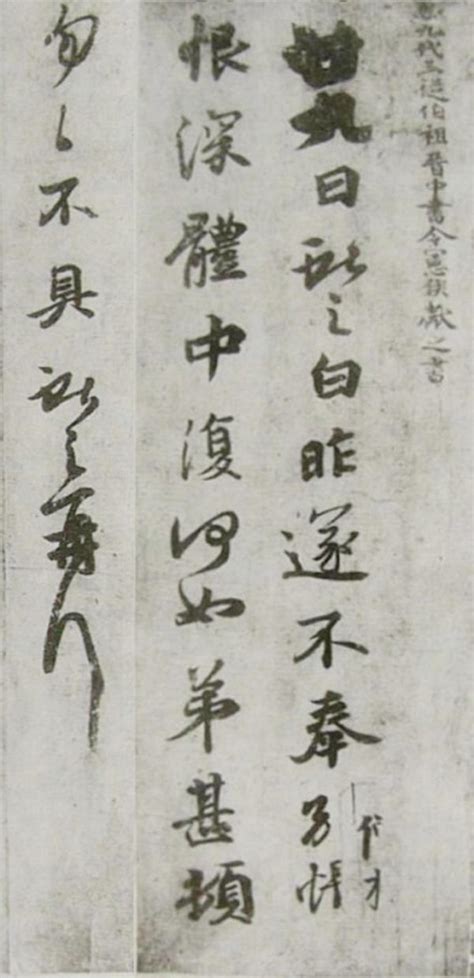 九代三從伯祖晉中書令憲侯獻之書
廿九日獻之白昨遂不奉別悵
恨深體中復何如弟甚頓
匆〻不具獻之再拜